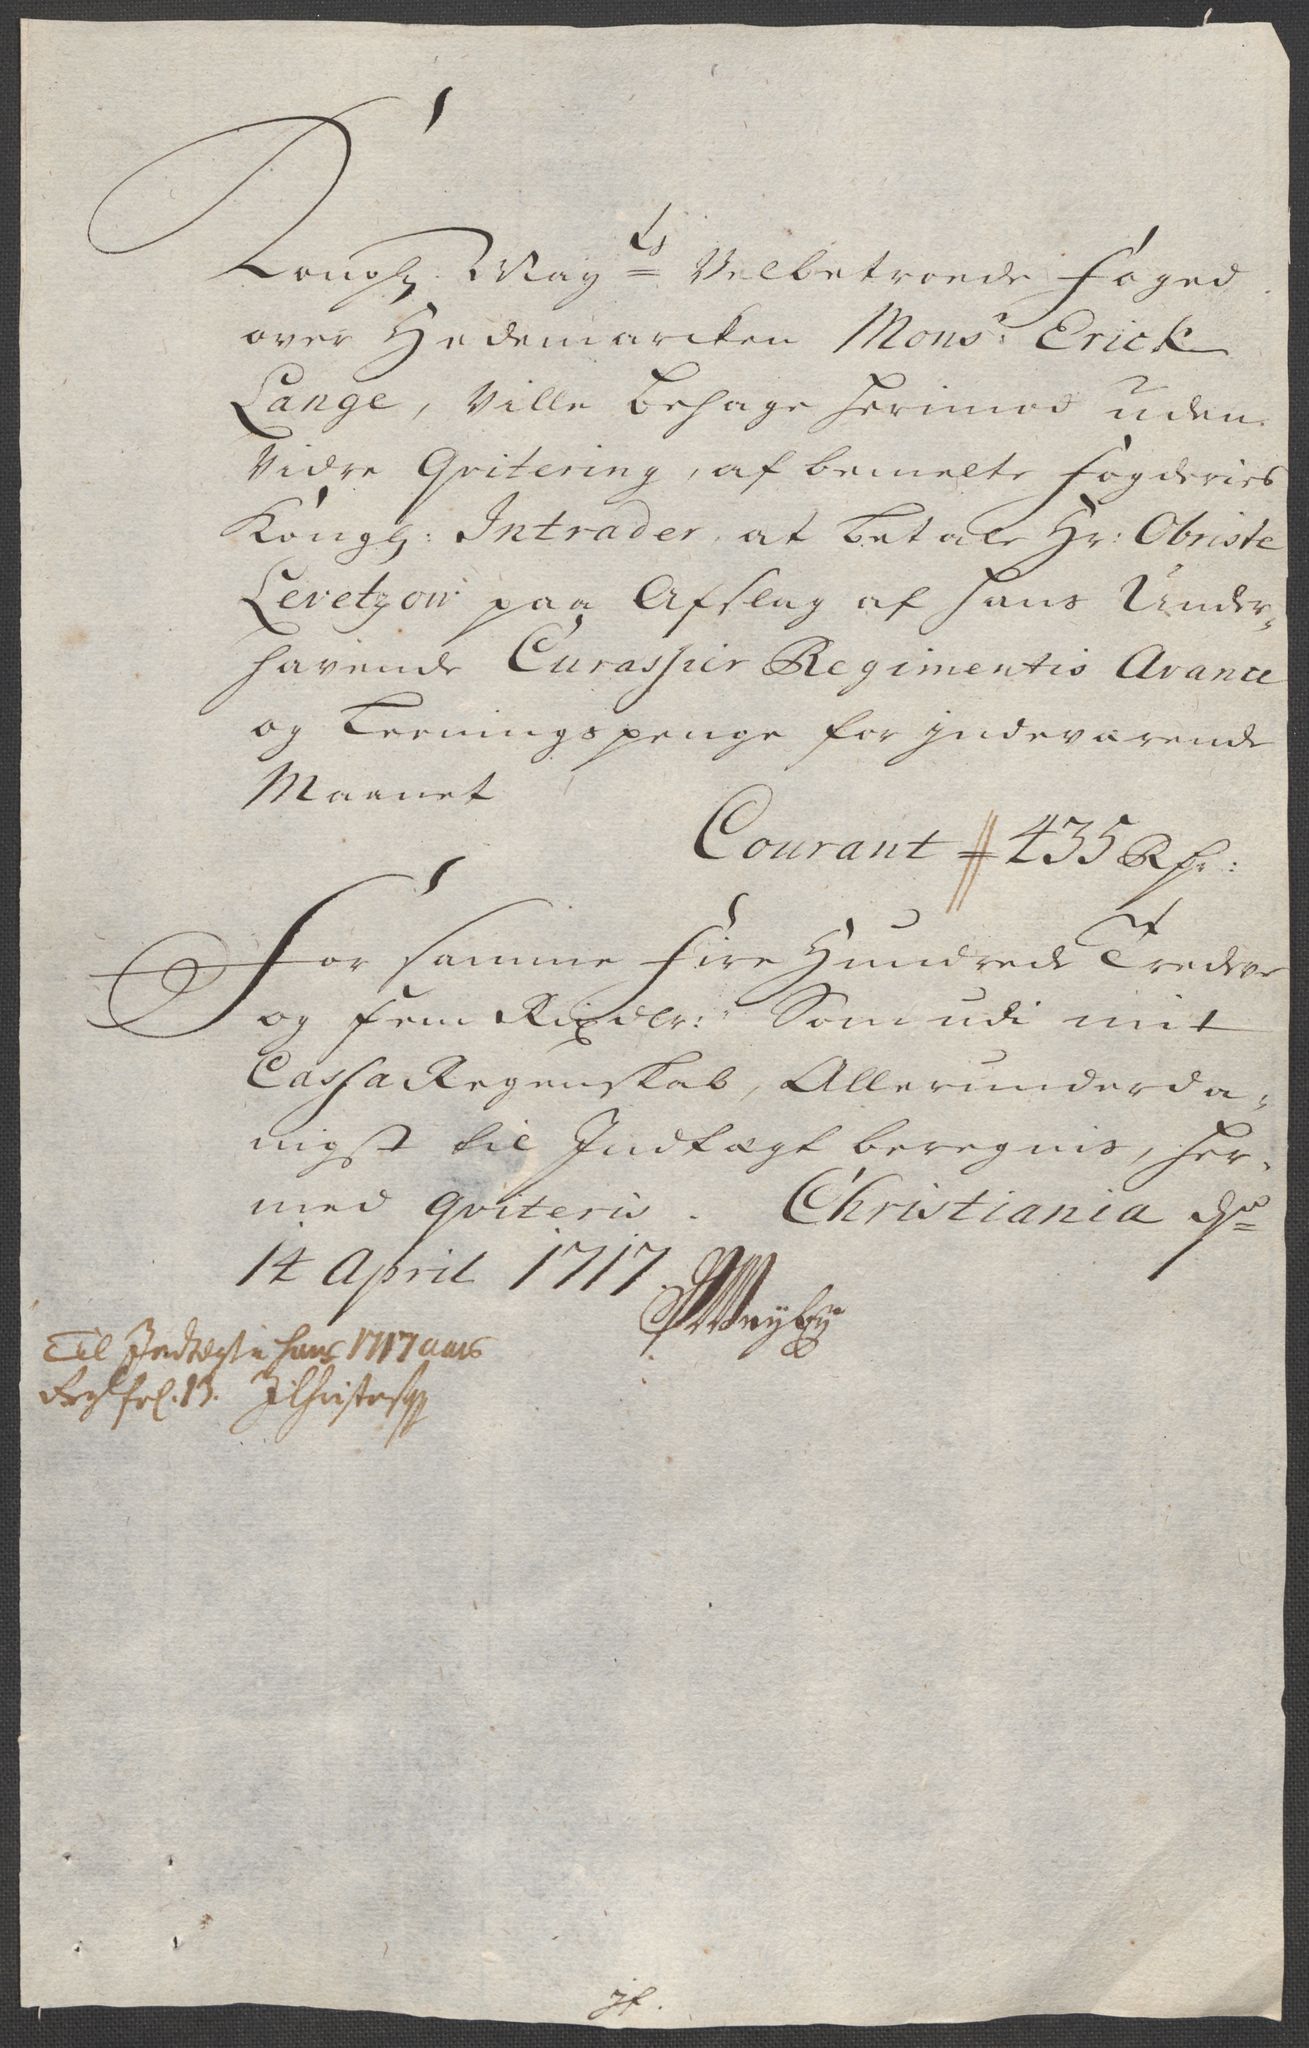 Kongl: May:ts Velbetroede Foged
over Hedemarcken Mons:r Erick
Lange, Ville behage herimod uden
Vidre Qvitering, af bemelte Fogderies
Kongl: Intrader, at betale Hr: Obriste
Levetzow paa Afslag af hans Under-
havende Curassier Regimentis Avance
og Teeringspenge for indeværende
Maanet
Courant 435 Rdr:
For samme Fire Hundrede Tredve
og fem Rixdlr: Som udi mit
Cassa Regenskab, Allerunderda-
nigst til Indtægt beregnis, her-
med qviteris. Christiania d:
14 April 1717
Til Indtægt i hans 1717 aars
fol. 13.